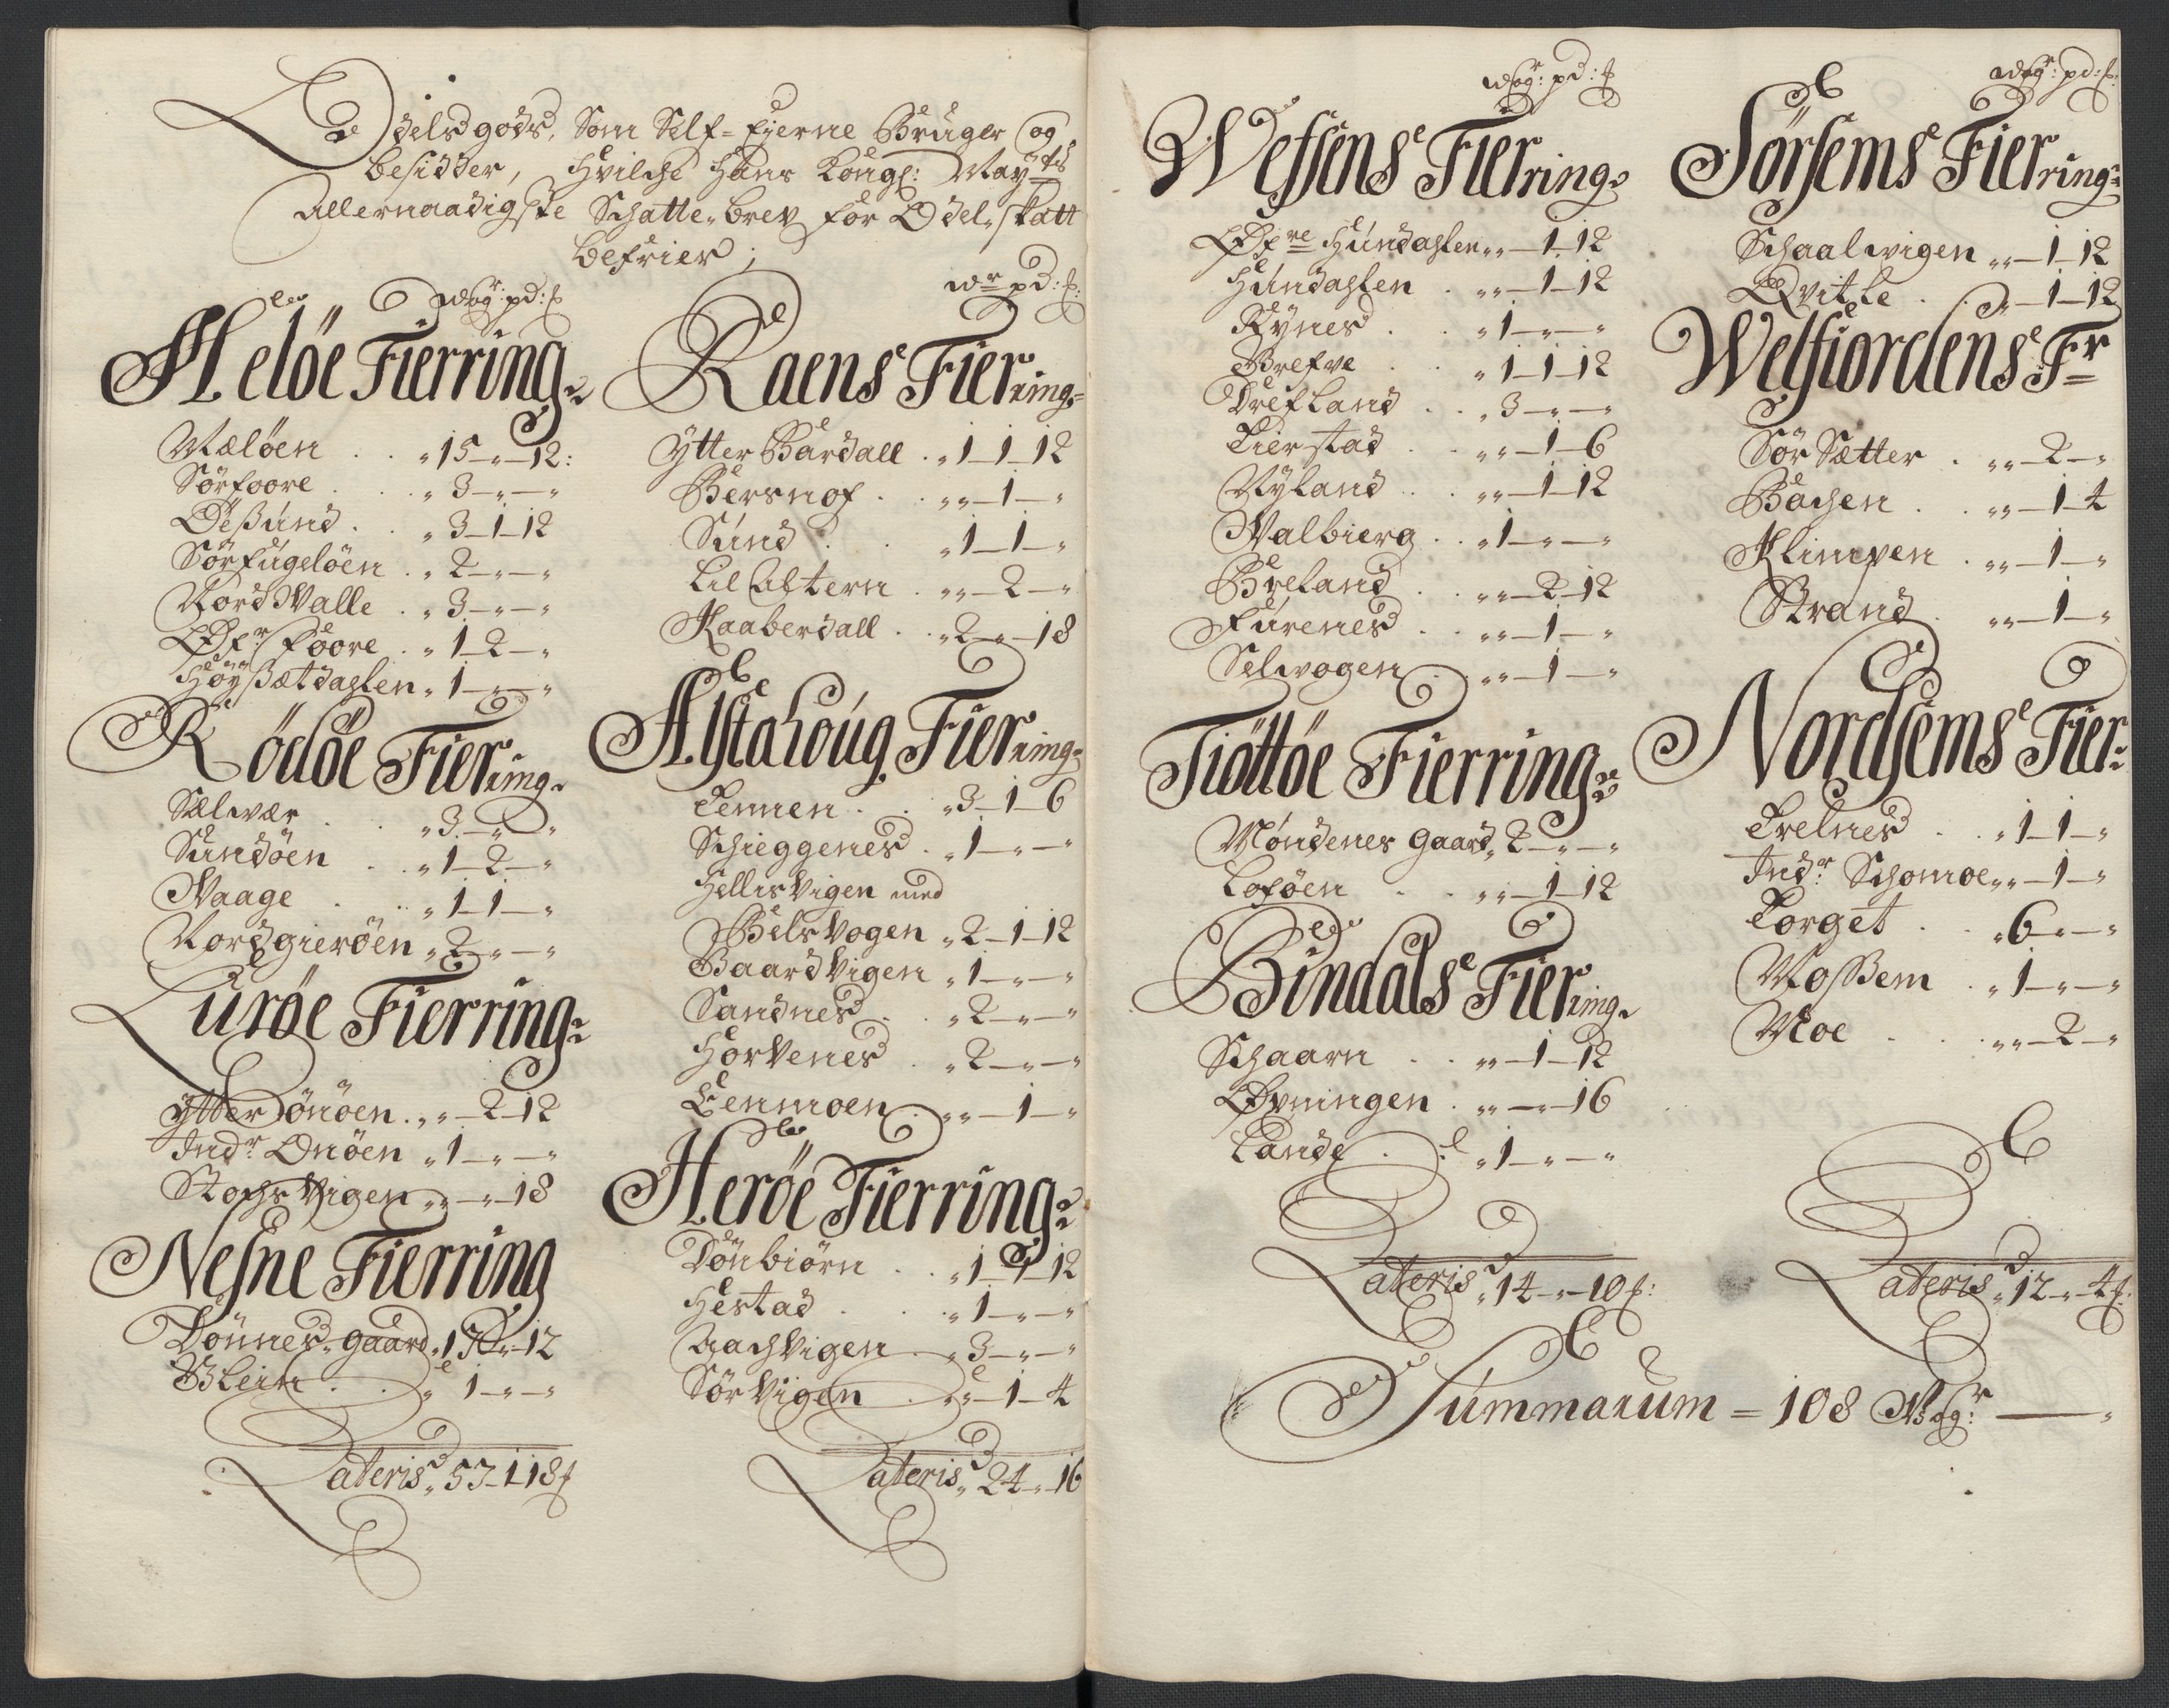 Odels gods, Som Self-Ejerne Bruger og
besidder, Hvilche Hans Kongl: Mayts
Allernaadigste Schatte-brev for Odel-skatt
befrier;
wog: pd: f
Meløe Fierring
Mæløen . . „ 15 — „ — 12:
Sørfoore . . „ 3 — „ — „
Ødesund . . „ 3 — 1 — 12
Sørfugeløen . „ 2 — „ — „
Nord Valle . „ 3 — „ — „
Øfr foore . „ 1 — 2 — „
Høysætdahlen „ 1 — „ — „
Rödöe Fierring
Selvær . . „ 3 — „ — „
Sundøen . „ 1 — 2 — „
Vaage . . „ 1 — 1 — „
Nordgierøen „ 2 — „ — „
Luröe Fierring
Ytter Onøen . „ „ — 2 — 12
Indr Onøen „ 1 — „ — „
Stochs Vigen „ „ — „ — 18
Nesne Fierring
Dønnes gaard „ 17 — „ — 12
Blein . . „ 1 — „ — „
Lateris „ 53 — 1 18 f
wr pd: f:
Raens Fierring
Ytter Bardall . „ 1 — 1 — 12
Bersnof . „ „ — 1 — „
Sund . . „ 1 — 1 — „
Lil Altern . „ „ — 2 — „
Kaaberdall . „ 2 — „ — 18
Alstahoug Fierring
Tennen . . „ 3 — 1 — 6
Schieggenes . „ 1 — „ — „
Hellis Vigen med
Bils Vogen „ 2 — 1 — 12
Baard Vigen „ 1 — „ — „
Sandnes . „ 2 — „ — „
Horvenes . „ 2 — „ — „
Lenmoen . „ „ — 1 — „
Heröe Fierring
Dønbiørn . . „ 1 — 1 — 12
Hestad . . „ 1 — „ — „
Aach Vigen . „ 3 — „ — „
Sør Vigen . „ „ — 1 — 4
Lateris „ 24 — „ — 16
wog: pd: f
Wefsens Fierring
Øfre Hundahlen „ „ — 1 — 12
Hundahlen . „ „ — 1 — 12
Rynes . . „ 1 — „ — „
Brefve . . „ 1 — 1 — 12
Drefland . . „ 3 — „ — „
Lierstad . . „ „ — 1 — 6
Nyland . . „ „ — 1 — 12
Valbierg . . „ 1 — „ — „
Breland . . „ „ — 2 — 12
Furenes . . „ „ — 1 — „
Selvogen . „ „ — 1 — „
Tiöttöe Fierring
Mondenes Gaard „ 2 — „ — „
Loføen . . „ „ — 1 — 12
Bindals Fierring
Schaarn . . „ „ — 1 — 12
Øvningen . „ „ — „ — 16
Lande . . „ 1 — „ — „
Lateris „ 14 — „ — 10 f:
wog: pd: f
Sørsems Fierring
Schaalvigen „ „ — 1 — 12
Qvitle . . „ „ — 1 — 12
Welfiordens Fr
Sør Sætter . „ „ — 2 — „
Bachen . . „ „ — 1 — 4
Klimpen . „ „ — 1 — „
Strand . „ „ — 1 — „
Nordsems Fier:
Trelnes . . „ 1 — 1 — „
Indr: Schomoe „ „ — 1 — „
Torget . . „ 6 — „ — „
Mossem . „ 1 — „ — „
Moe . . „ „ — 2 — „
Lateris „ 12 — „ — 4 f:
Summarum = 108 Wogr — „